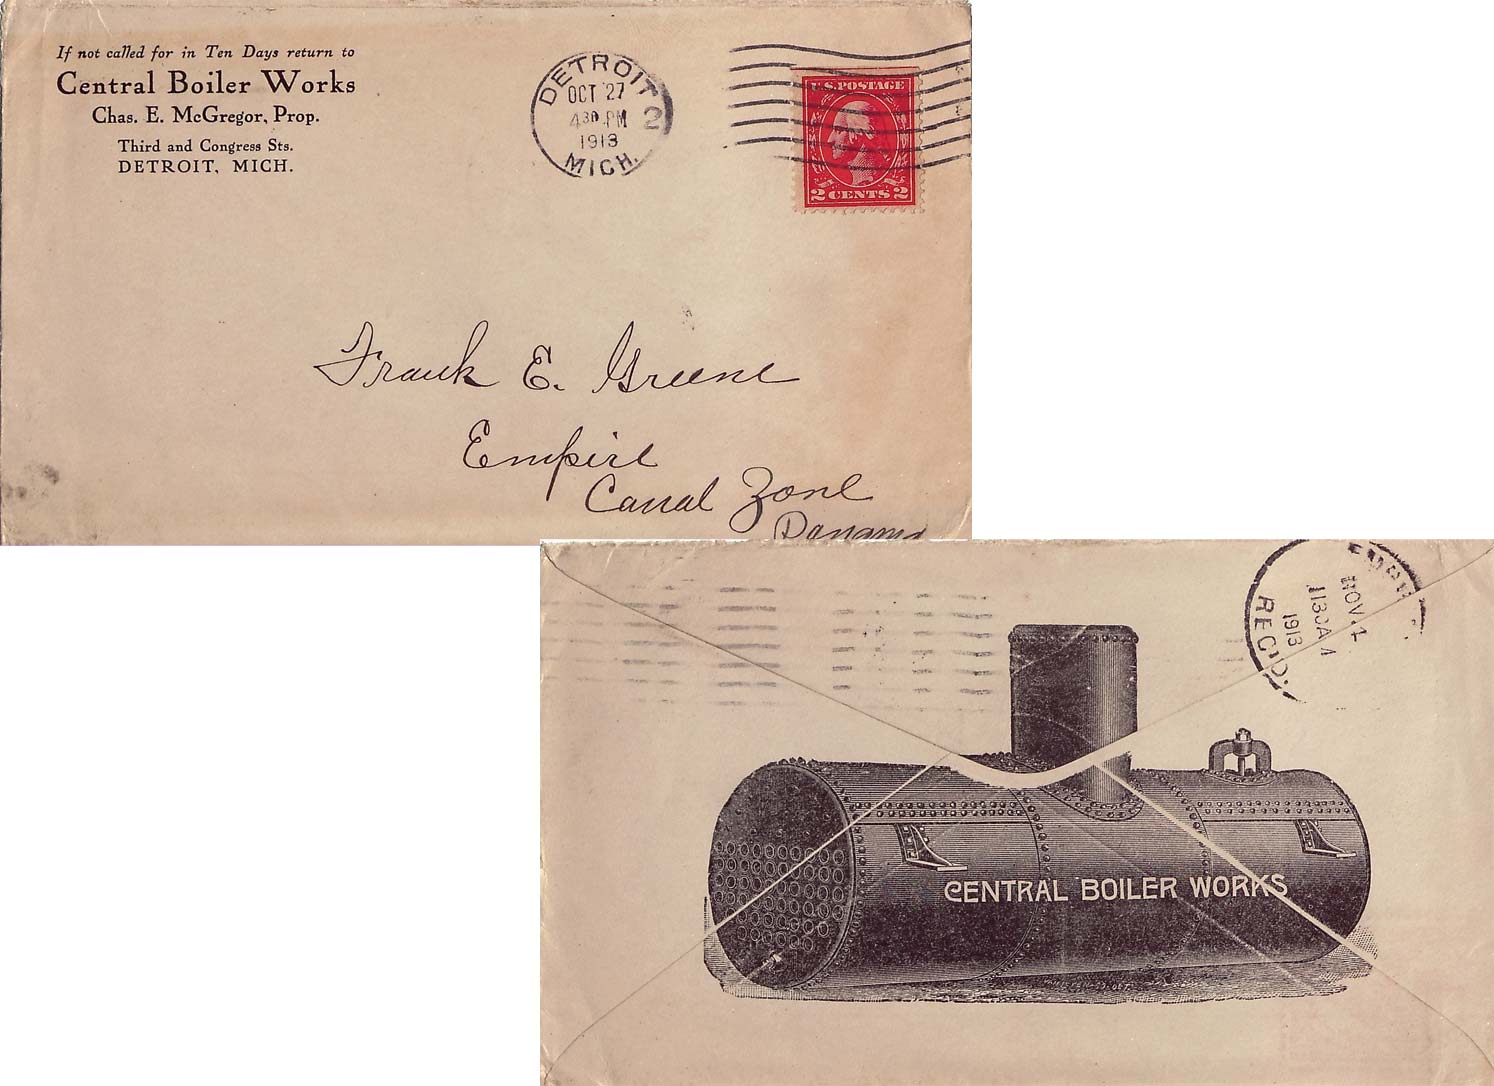 If not called for in Ten Days return to
Central Boiler Works
Chas. E. McGregor, Prop.
Third and Congress Sts.
DETROIT, MICH.
DETROIT 2
OCT 27
4 30 PM
1913
MICH.
U.S. POSTAGE
2 CENTS 2
Frank E. Greene
Empire
Canal Zone
Panama
NOV 4
1130AM
1913
REC'D.
CENTRAL BOILER WORKS